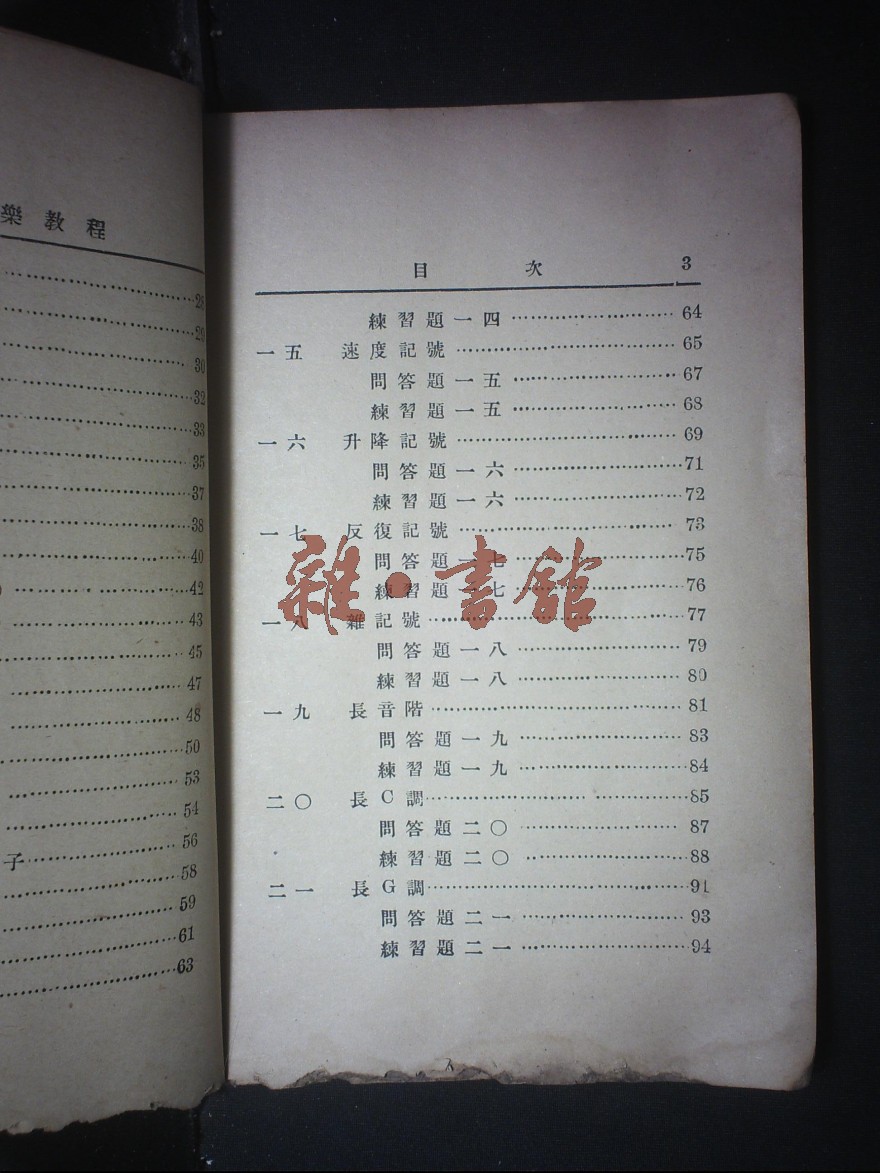 樂教程
28
29
30
32
33
35
37
38
40
42
43
45
47
48
50
53
54
56
子
58
59
61
63
目次 3
練習題一四 64
一五 速度記號 65
問答題一五 67
練習題一五 68
一六 升降記號 69
問答題一六 71
練習題一六 72
一七 反復記號 73
問答題一七 75
練習題一七 76
一八 雜記號 77
問答題一八 79
練習題一八 80
一九 長音階 81
問答題一九 83
練習題一九 84
二〇 長C調 85
問答題二〇 87
練習題二〇 88
二一 長G調 91
問答題二一 93
練習題二一 94
雜·書館